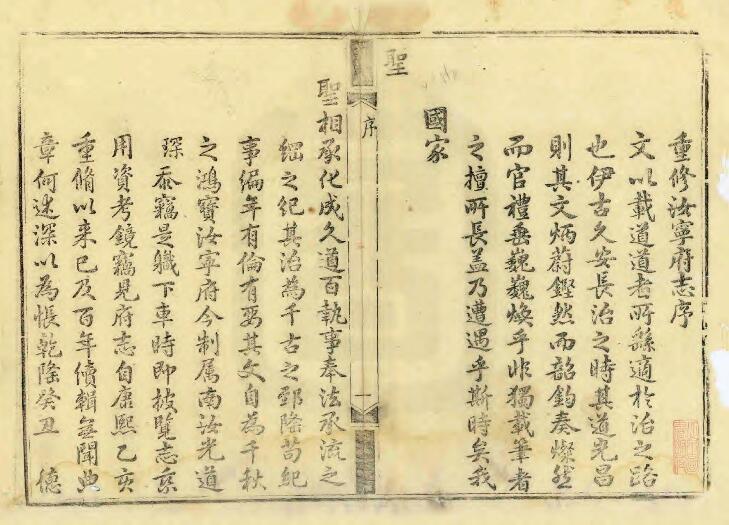 重修汝寧府志序
文以載道道者所繇適於治之路
也伊古久安長治之時其道光昌
則其文炳蔚鏗然而韶鈞奏燦然
而官禮垂巍巍煥乎非獨載筆者
之擅所長盖乃遭遇乎斯時矣我
國家
聖
序
一
聖相承化成久道百執事奉法承流之
細之紀其治為千古之郅隆苟紀
事編年有倫有要其文自為千秋
之鴻寶汝寧府今制属南汝光道
琛忝竊是職下車時即披覽志乘
用資考鏡竊見府志自康熙乙亥
重脩以來已及百年續輯無聞典
章何述深以為悵乾隆癸丑 德